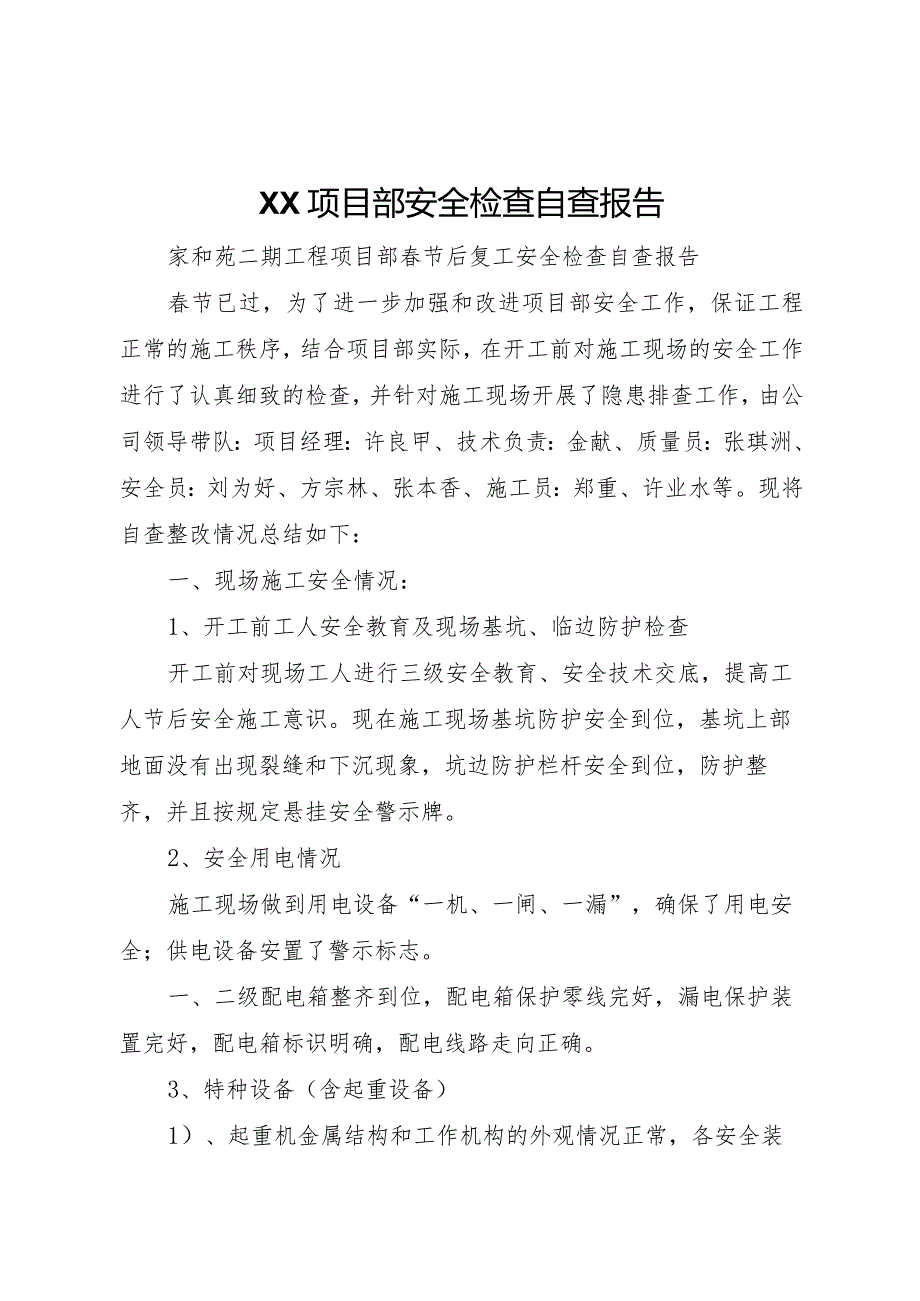 XX 项目部安全检查自查报告
家和苑二期工程项目部春节后复工安全检查自查报告
春节已过，为了进一步加强和改进项目部安全工作，保证工程
正常的施工秩序，结合项目部实际，在开工前对施工现场的安全工作
进行了认真细致的检查，并针对施工现场开展了隐患排查工作，由公
司领导带队：项目经理：许良甲、技术负责：金献、质量员：张琪洲、
安全员：刘为好、方宗林、张本香、施工员：郑重、许业水等。现将
自查整改情况总结如下：
一、现场施工安全情况：
1、开工前工人安全教育及现场基坑、临边防护检查
开工前对现场工人进行三级安全教育、安全技术交底，提高工
人节后安全施工意识。现在施工现场基坑防护安全到位，基坑上部
地面没有出现裂缝和下沉现象，坑边防护栏杆安全到位，防护整
齐，并且按规定悬挂安全警示牌。
2、安全用电情况
施工现场做到用电设备“一机、一闸、一漏”，确保了用电安
全；供电设备安置了警示标志。
一、二级配电箱整齐到位，配电箱保护零线完好，漏电保护装
置完好，配电箱标识明确，配电线路走向正确。
3、特种设备（含起重设备）
1）、起重机金属结构和工作机构的外观情况正常，各安全装